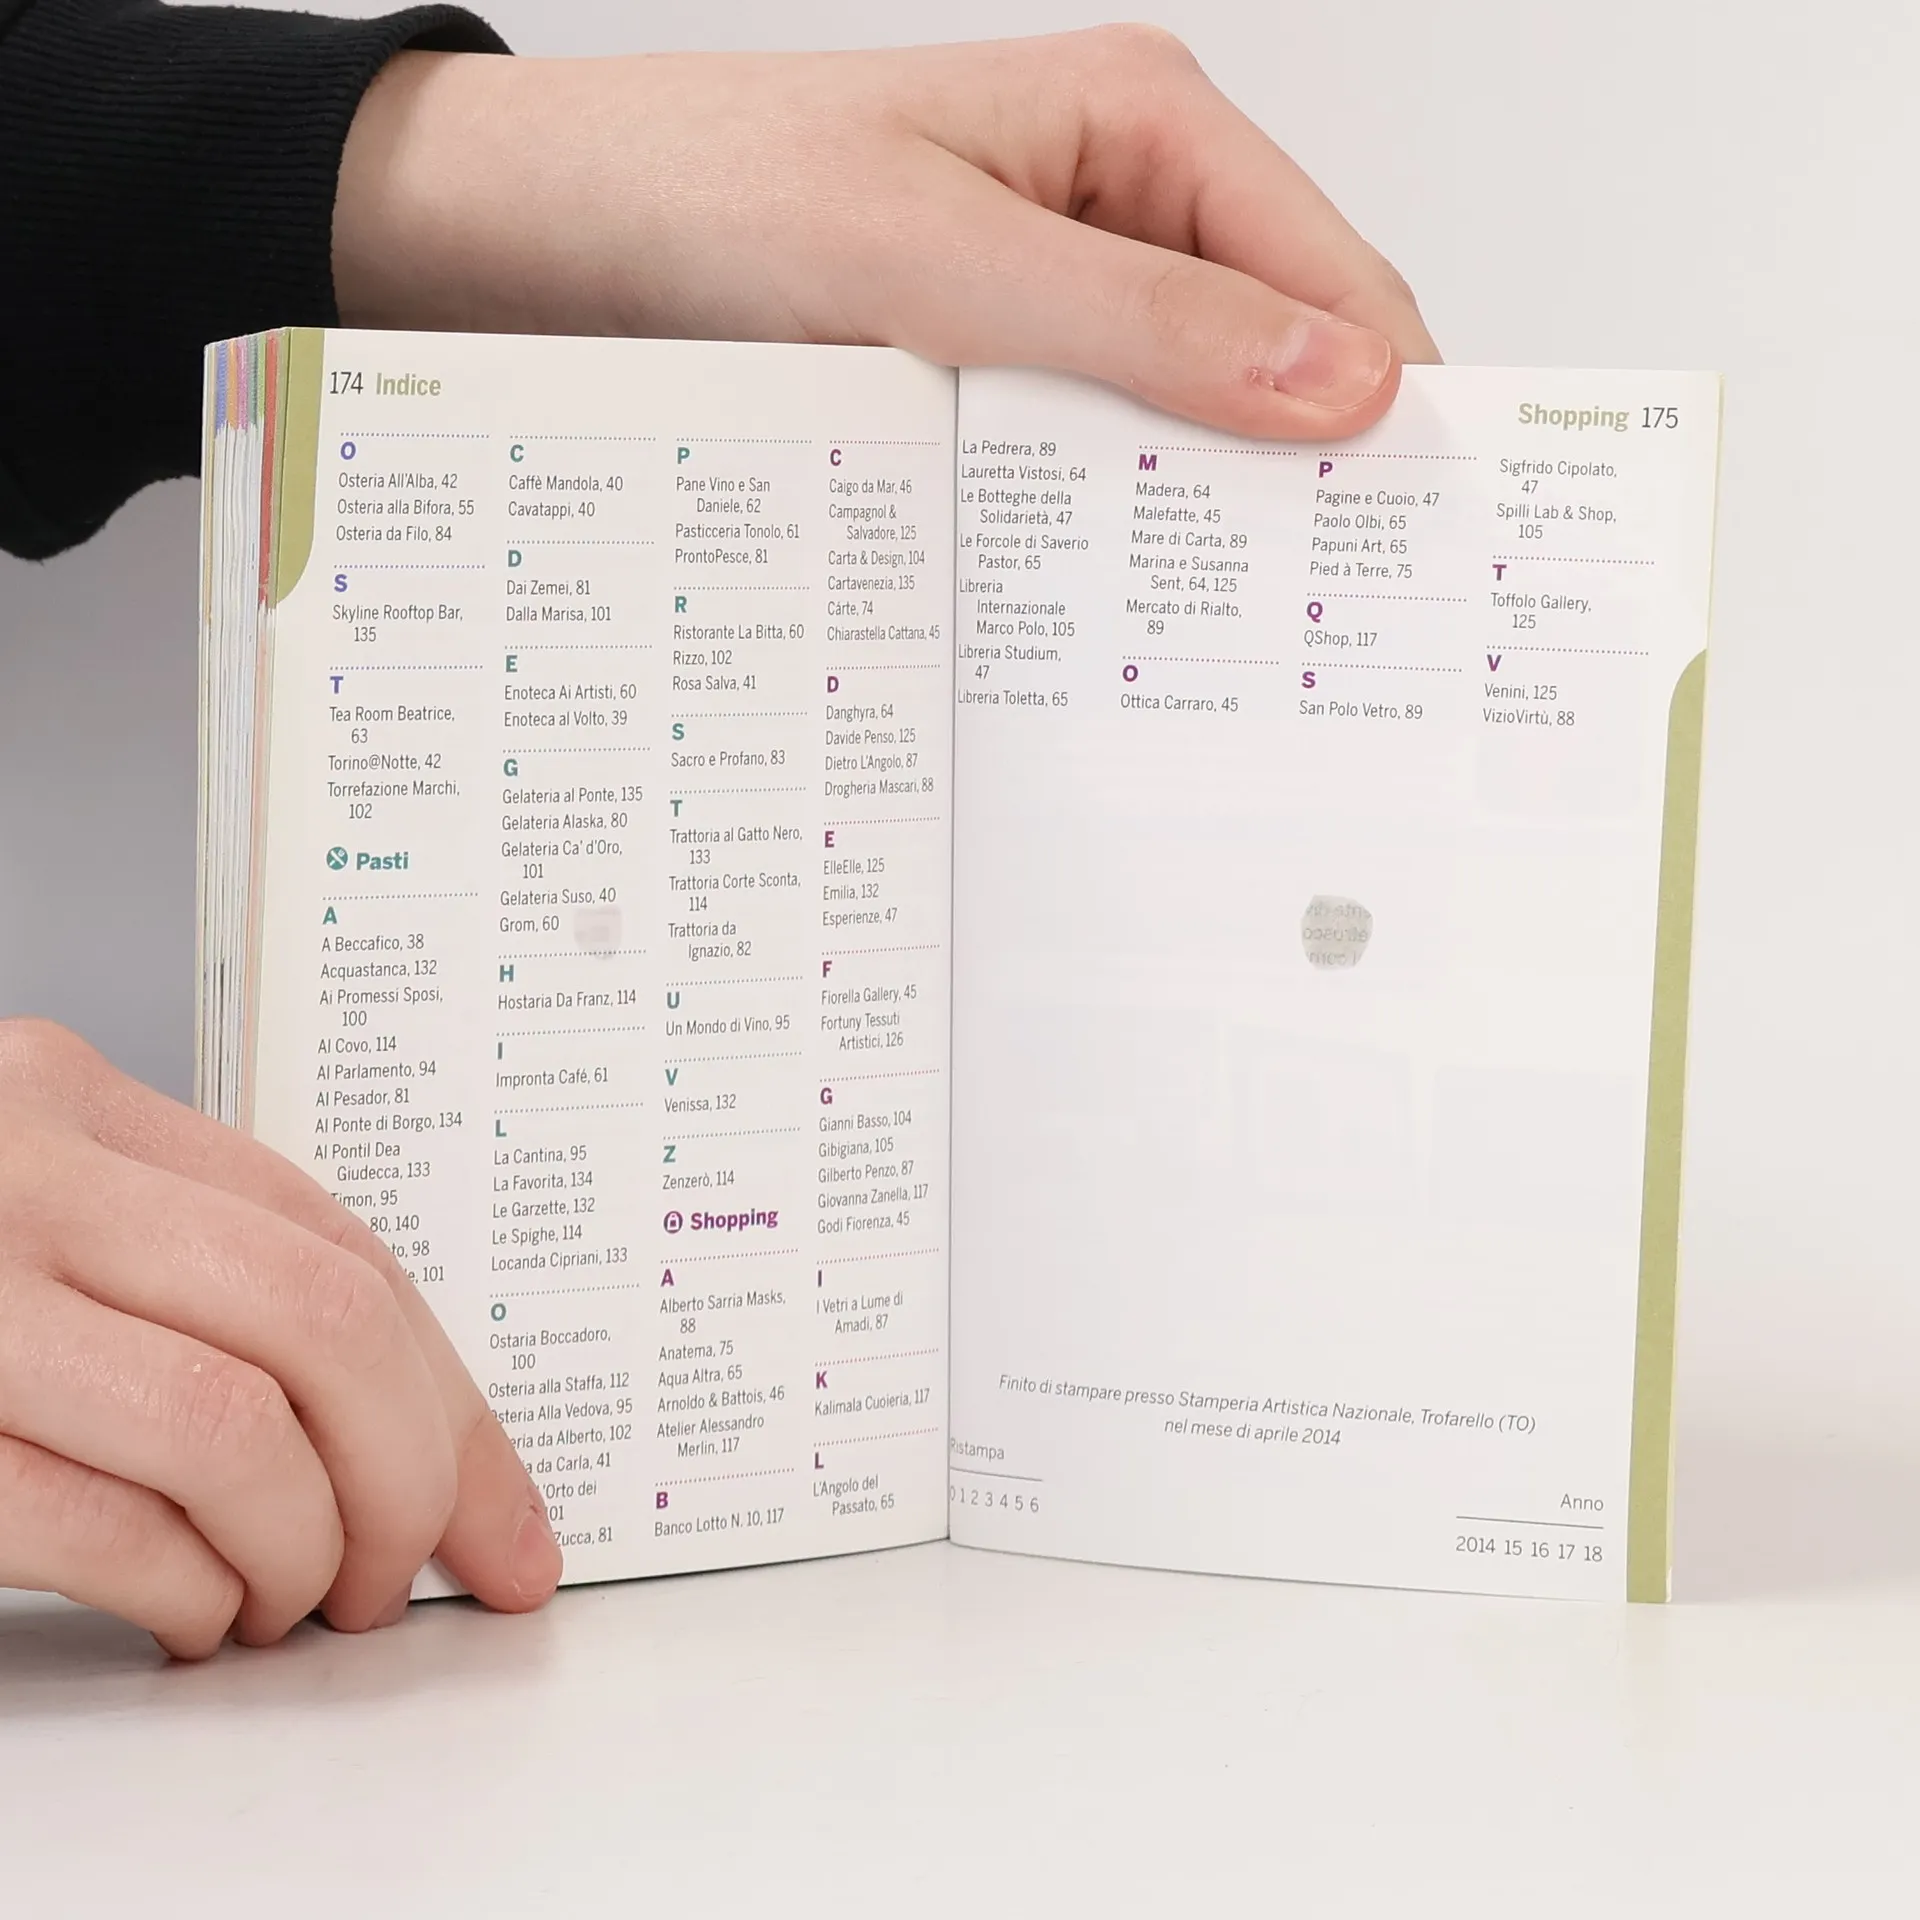 174 Indice
O
Osteria All'Alba, 42
Osteria alla Bifora, 55
Osteria da Filo, 84
S
Skyline Rooftop Bar,
135
T
Tea Room Beatrice,
63
Torino@Notte, 42
Torrefazione Marchi,
102
Pasti
A
A Beccafico, 38
Acquastanca, 132
Ai Promessi Sposi,
100
Al Covo, 114
Al Parlamento, 94
Al Pesador, 81
Al Ponte di Borgo, 134
Al Pontil Dea
Giudecca, 133
Timon, 95
80, 140
98
101
C
Caffè Mandola, 40
Cavatappi, 40
D
Dai Zemei, 81
Dalla Marisa, 101
E
Enoteca Ai Artisti, 60
Enoteca al Volto, 39
G
Gelateria al Ponte, 135
Gelateria Alaska, 80
Gelateria Ca' d'Oro,
101
Gelateria Suso, 40
Grom, 60
H
Hostaria Da Franz, 114
I
Impronta Café, 61
L
La Cantina, 95
La Favorita, 134
Le Garzette, 132
Le Spighe, 114
Locanda Cipriani, 133
O
Ostaria Boccadoro,
100
Osteria alla Staffa, 112
Osteria Alla Vedova, 95
da Alberto, 102
da Carla, 41
L'Orto dei
101
Zucca, 81
P
Pane Vino e San
Daniele, 62
Pasticceria Tonolo, 61
ProntoPesce, 81
R
Ristorante La Bitta, 60
Rizzo, 102
Rosa Salva, 41
S
Sacro e Profano, 83
T
Trattoria al Gatto Nero,
133
Trattoria Corte Sconta,
114
Trattoria da
Ignazio, 82
U
Un Mondo di Vino, 95
V
Venissa, 132
Z
Zenzerò, 114
Shopping
A
Alberto Sarria Masks,
88
Anatema, 75
Aqua Altra, 65
Arnoldo & Battois, 46
Atelier Alessandro
Merlin, 117
B
Banco Lotto N. 10, 117
C
Caigo da Mar, 46
Campagnol &
Salvadore, 125
Carta & Design, 104
Cartavenezia, 135
Cárte, 74
Chiarastella Cattana, 45
D
Danghyra, 64
Davide Penso, 125
Dietro L'Angolo, 87
Drogheria Mascari, 88
E
ElleElle, 125
Emilia, 132
Esperienze, 47
F
Fiorella Gallery, 45
Fortuny Tessuti
Artistici, 126
G
Gianni Basso, 104
Gibigiana, 105
Gilberto Penzo, 87
Giovanna Zanella, 117
Godi Fiorenza, 45
I
I Vetri a Lume di
Amadi, 87
K
Kalimala Cuoieria, 117
L
L'Angolo del
Passato, 65
Shopping 175
La Pedrera, 89
Lauretta Vistosi, 64
Le Botteghe della
Solidarietà, 47
Le Forcole di Saverio
Pastor, 65
Libreria
Internazionale
Marco Polo, 105
Libreria Studium,
47
Libreria Toletta, 65
M
Madera, 64
Malefatte, 45
Mare di Carta, 89
Marina e Susanna
Sent, 64, 125
Mercato di Rialto,
89
O
Ottica Carraro, 45
P
Pagine e Cuoio, 47
Paolo Olbi, 65
Papuni Art, 65
Pied à Terre, 75
Q
QShop, 117
S
San Polo Vetro, 89
Sigfrido Cipolato,
47
Spilli Lab & Shop,
105
T
Toffolo Gallery,
125
V
Venini, 125
VizioVirtù, 88
Finito di stampare presso Stamperia Artistica Nazionale, Trofarello (TO)
nel mese di aprile 2014
Ristampa
0 1 2 3 4 5 6
Anno
2014 15 16 17 18